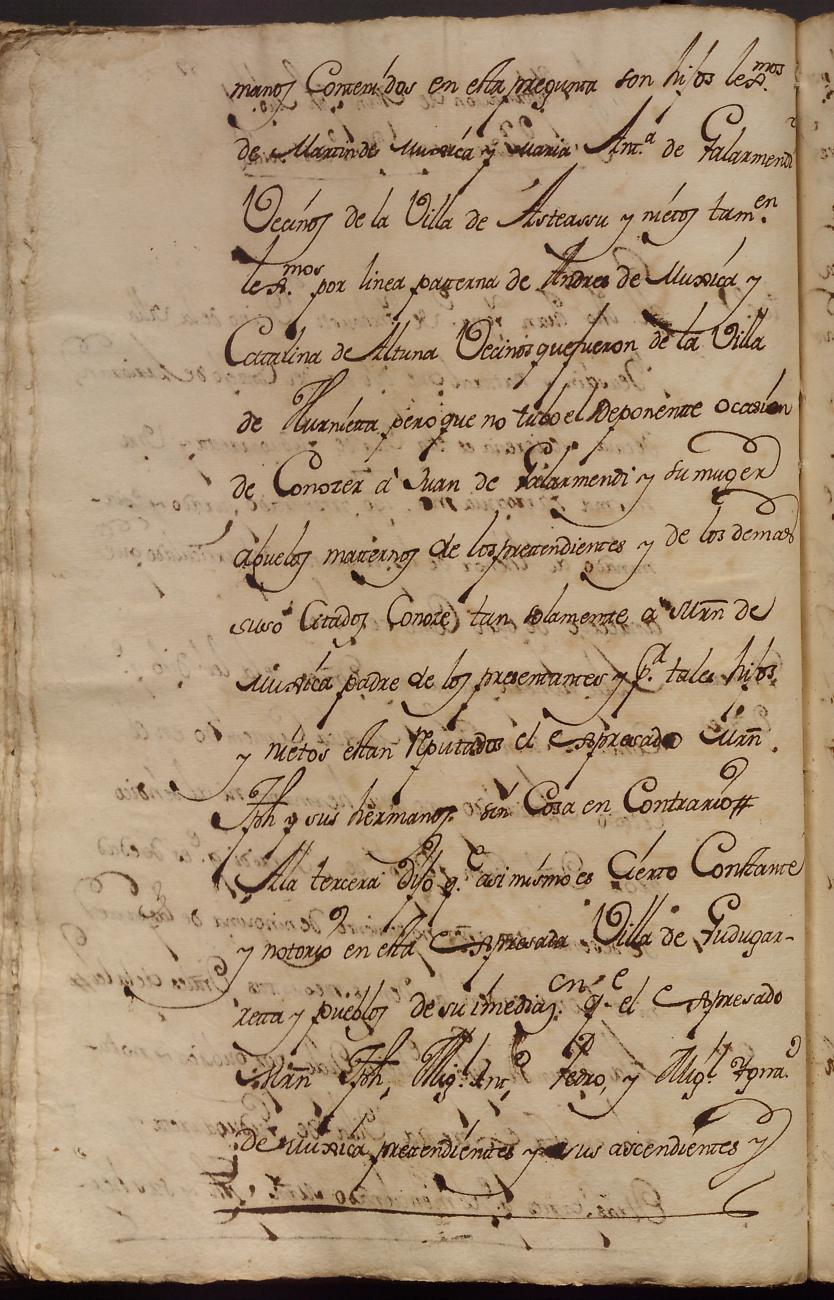 manos Contenidos en esta pregunta son hijos lexmos
de Martin de Muxica y Maria Anta de Galarmendi
Vecinos de la Villa de Asteassu y nietos tamen
lexmos por linea paterna de Andres de Muxica y
Catalina de Altuna Vecinos que fueron de la Villa
de Hurnieta pero que no tubo el Deponente ocasion
de Conozer a Juan de Galarmendi y su muger
abuelos maternos de los pretendientes y de los demas
suso Citados Conoze tan solamente a Mrñ de
Muxica padre de los presentantes y pr tales hijos
y nietos estan Reputados el expresado Mrñ
Jph y sus hermanos sin Cosa en Contrario
A la tercera dijo qe asi mismo es Cierto Constante
y notorio en esta expresada Villa de Gudugar-
reta y pueblos de su imediazcn qe el expresado
Mrñ Jph, Migl Anto Pedro, y Migl Ygnao
de Muxica pretendientes y sus ascendientes y